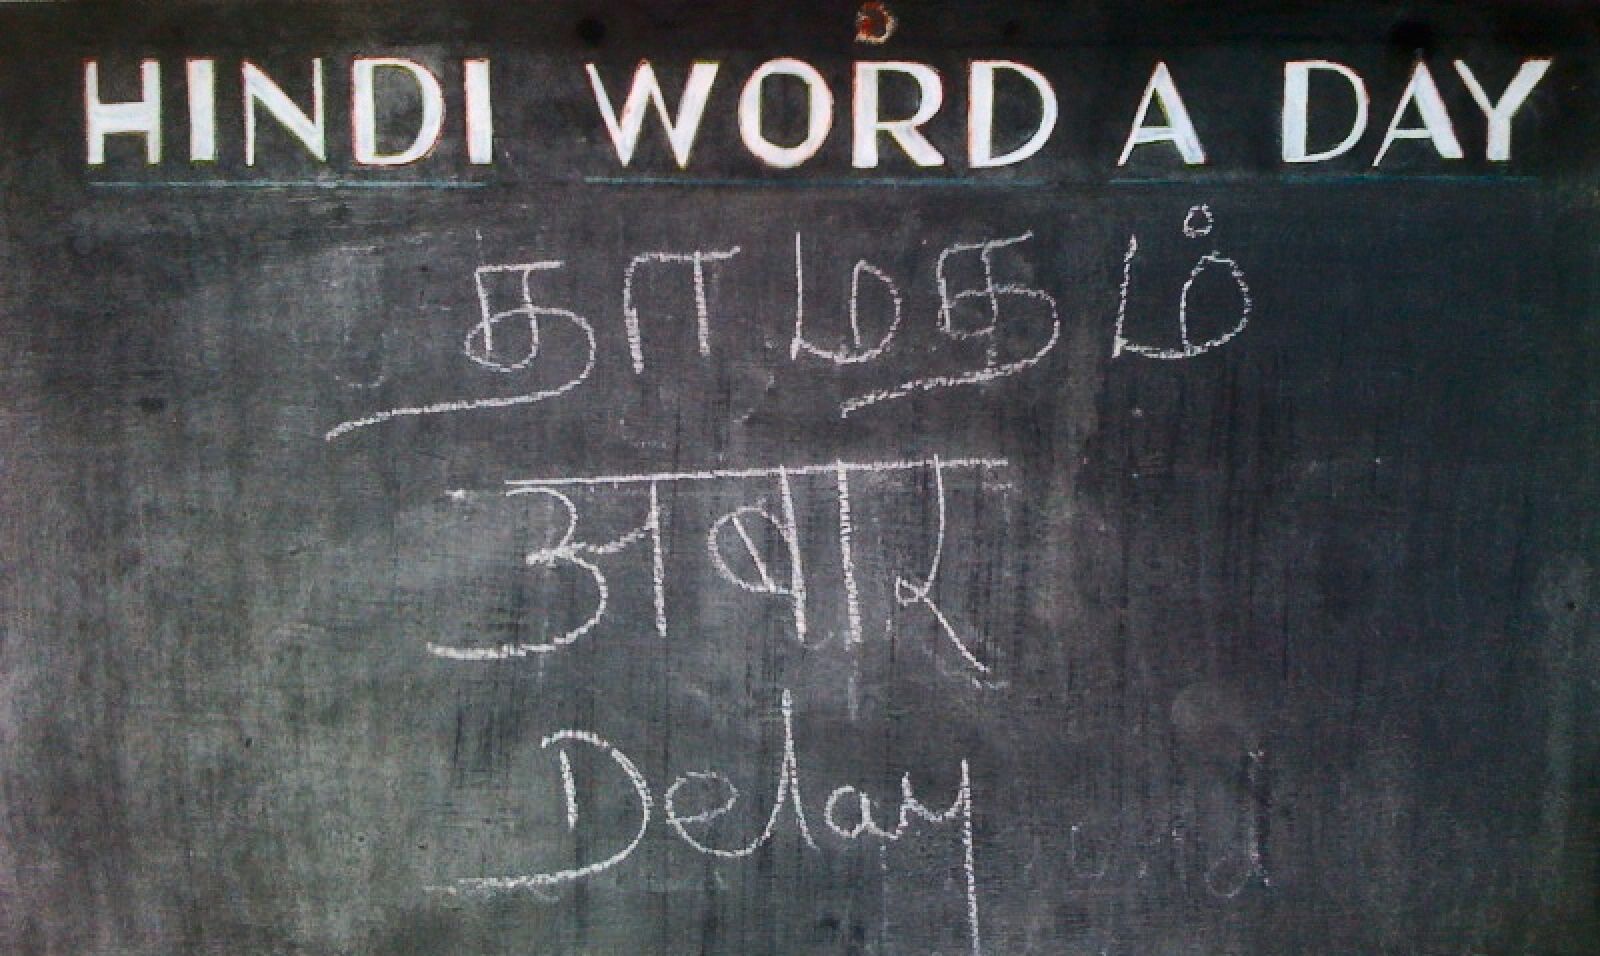 HINDI WORD A DAY
தாமதம்
अबार
Delay